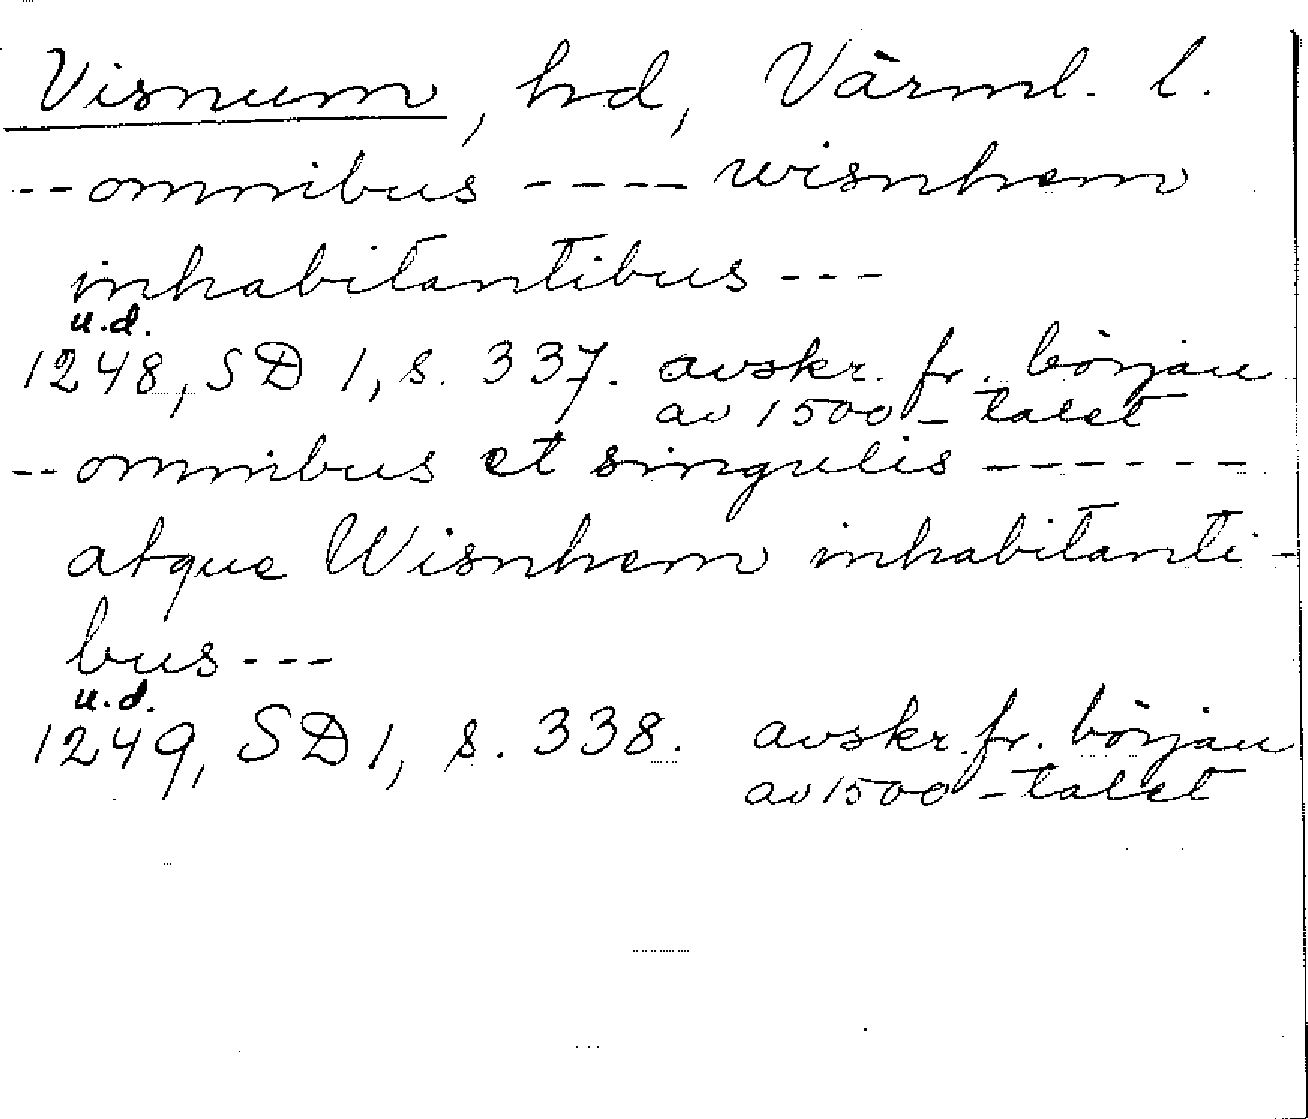 Visnum, hd, Värml. l.
-- omnibus ---- wisnhem
inhabitantibus ---
u.d.
1248, SD 1, s. 337. avskr. fr. början
av 1500-talet
-- omnibus et singulis ------
atque Wisnhem inhabitanti-
bus ---
u.d.
1249, SD 1, s. 338. avskr. fr. början
av 1500-talet